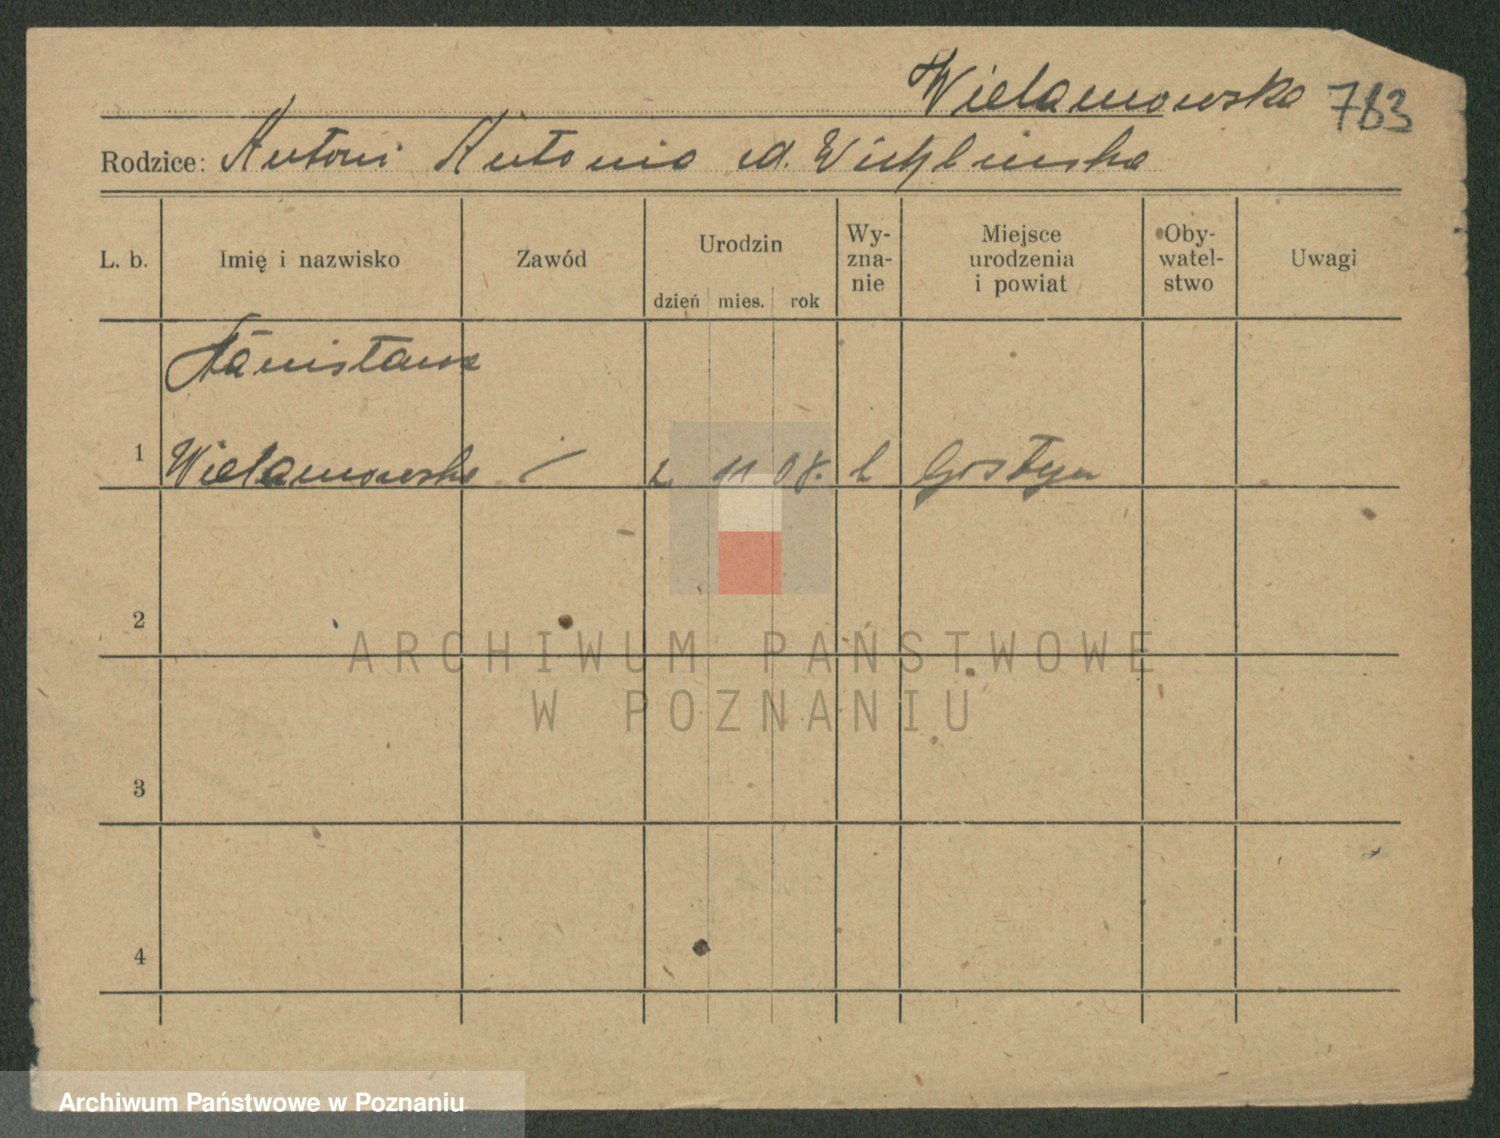 Wielamowska 783
Rodzice: Antoni Antonia
L. b.
Imię i nazwisko
Zawód
Urodzin
dzień mies. rok
Wy-
zna-
nie
Miejsce
urodzenia
i powiat
Oby-
watel-
stwo
Uwagi
Stanisława
1 Wielamowska 11 08. Gostyn
2
3
4
ARCHIWUM PAŃSTWOWE
W POZNANIU
Archiwum Państwowe w Poznaniu